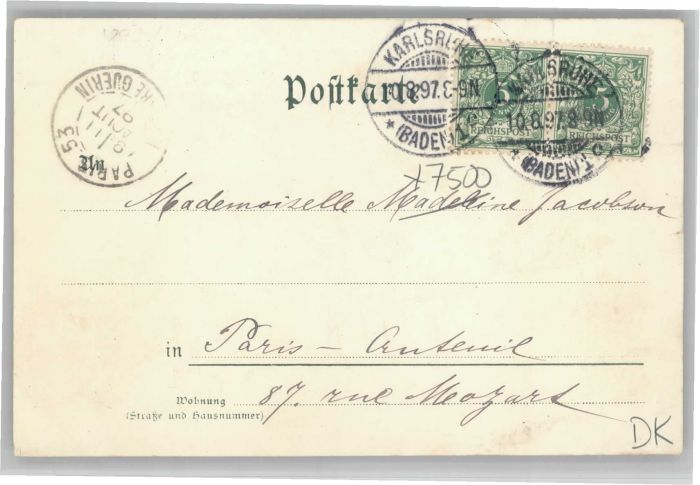 KARLSRUHE
10.8.97.8-9N
* (BADEN) 1.
KARLSRUHE
10.8.97.8-9N
* (BADEN) 1.
5 5
REICHSPOST REICHSPOST
Postkarte
PARIS 53
11
AOUT
97
RE GUERIN
An
+7500
Mademoiselle Madeleine Jacobson
in Paris - Auteuil
Wohnung 87. rue Mozart
(Straße und Hausnummer)
DK